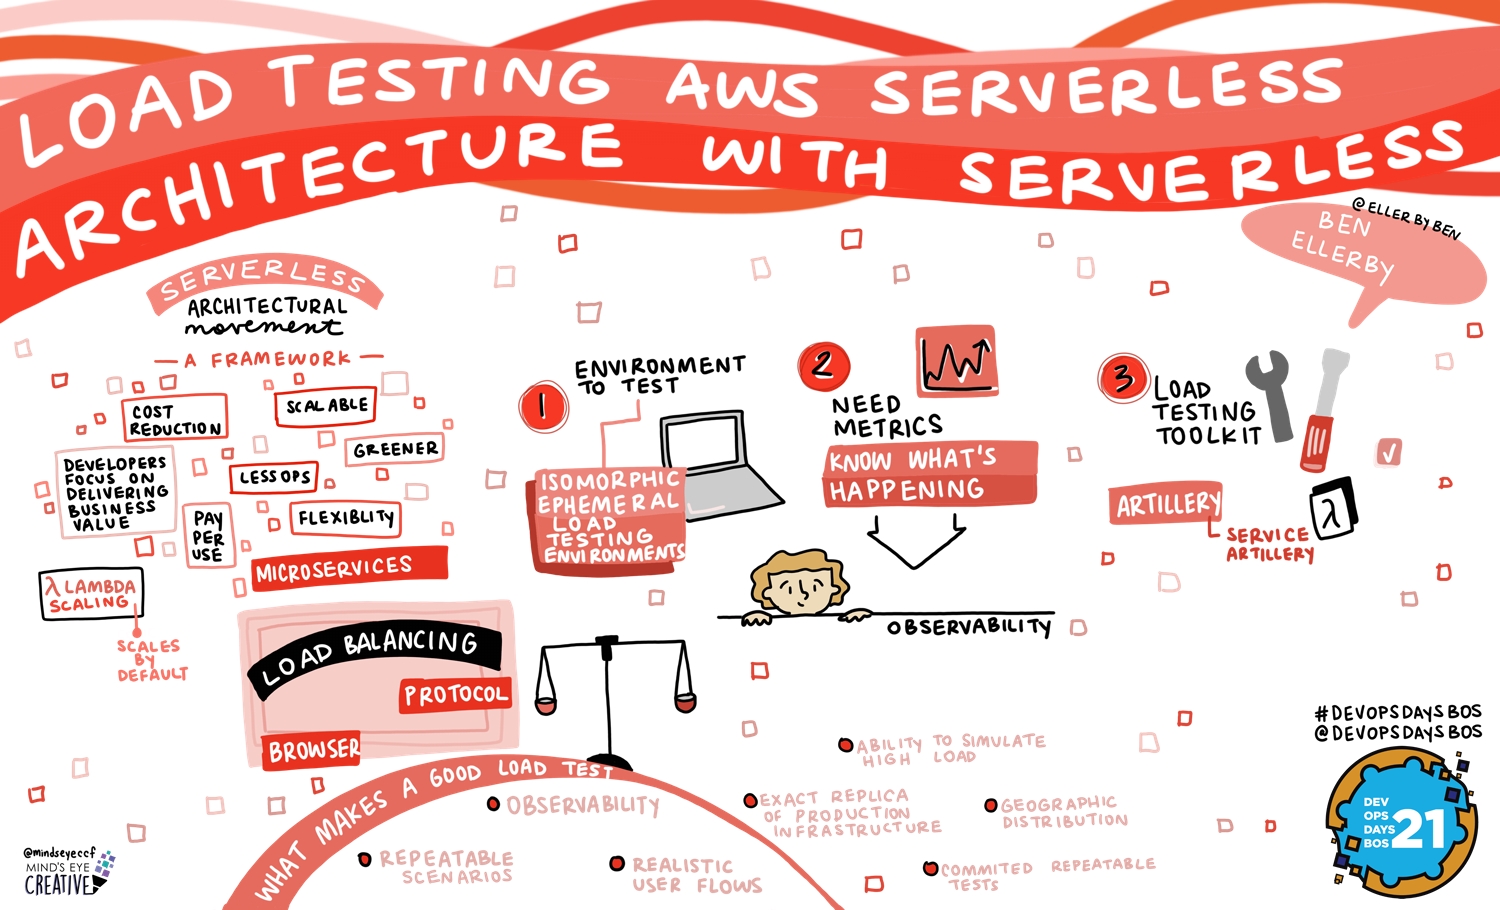 LOAD TESTING AWS SERVERLESS
ARCHITECTURE WITH SERVERLESS
@ELLERBYBEN
BEN
ELLERBY
SERVERLESS
ARCHITECTURAL
movement
— A FRAMEWORK —
COST
REDUCTION
SCALABLE
GREENER
DEVELOPERS
FOCUS ON
DELIVERING
BUSINESS
VALUE
LESS OPS
PAY
PER
USE
FLEXIBLITY
MICROSERVICES
λ LAMBDA
SCALING
SCALES
BY
DEFAULT
LOAD BALANCING
PROTOCOL
BROWSER
1
ENVIRONMENT
TO TEST
ISOMORPHIC
EPHEMERAL
LOAD
TESTING
ENVIRONMENTS
2
NEED
METRICS
KNOW WHAT'S
HAPPENING
OBSERVABILITY
3
LOAD
TESTING
TOOLKIT
ARTILLERY
SERVICE
ARTILLERY
λ
WHAT MAKES A GOOD LOAD TEST
OBSERVABILITY
REPEATABLE
SCENARIOS
REALISTIC
USER FLOWS
ABILITY TO SIMULATE
HIGH LOAD
EXACT REPLICA
OF PRODUCTION
INFRASTRUCTURE
GEOGRAPHIC
DISTRIBUTION
COMMITED REPEATABLE
TESTS
#DEVOPSDAYSBOS
@DEVOPSDAYSBOS
DEV
OPS
DAYS
BOS
21
@mindseyeccf
MIND'S EYE
CREATIVE